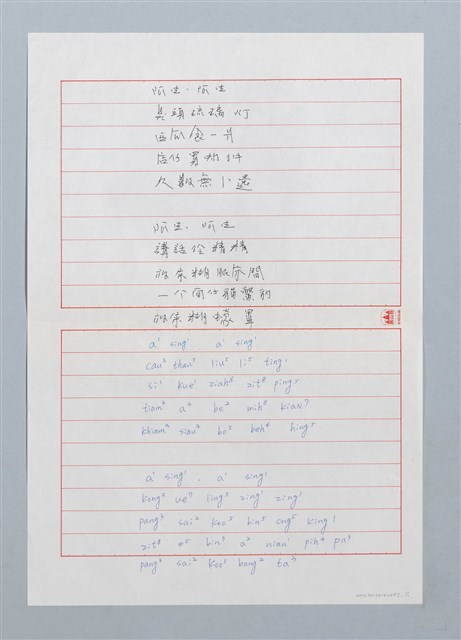 阿生，阿生
臭頭琉璃灯
西瓜食一片
店仔買物件
欠數無卜還
阿生，阿生
講話全精精
放屎糊眠床間
一个囝仔領繫豹
放屎糊蠓罩
a¹ sing¹ a¹ sing¹
cau³ thau⁵ liu⁵ li⁵ ting¹
si¹ kue¹ ziah⁸ zit⁸ ping⁵
tiam³ a² be² mih⁸ kian⁷
khiam³ siau³ bo⁵ beh⁴ hing⁵
a¹ sing¹ , a¹ sing¹
kong² ue⁷ ling³ zing¹ zing¹
pang³ sai² koo⁵ bin⁵ cng⁵ king¹
zit⁸ e⁵ bin² a² nian¹ pih⁴ pa³
pang³ sai² koo⁵ bang² ta³